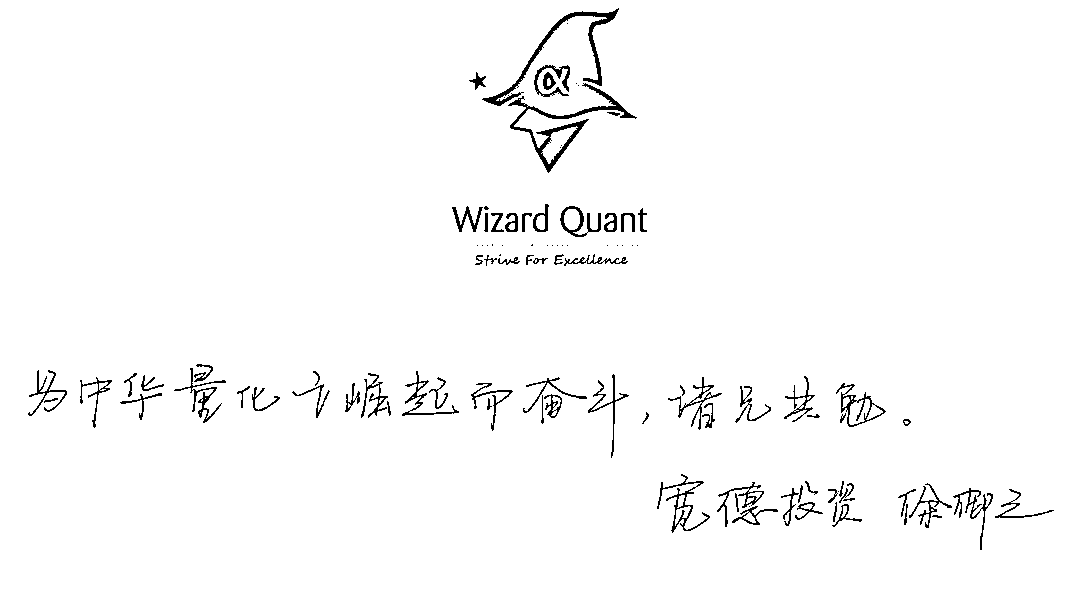 α
Wizard Quant
Strive For Excellence
为中华量化之崛起而奋斗，诸兄共勉。
宽德投资 徐御之